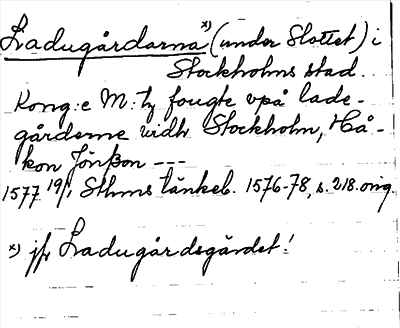 Ladugårdarna x) (under Slottet) i
Stockholms stad.
Kong:e M:tz fougte vpå lade-
gårderne vidh Stockholm, Hå-
kon Jönßon ---
1577 19/1 Sthms tänkeb. 1576-78, s. 218 orig.
x) jfr Ladugårdsgärdet!